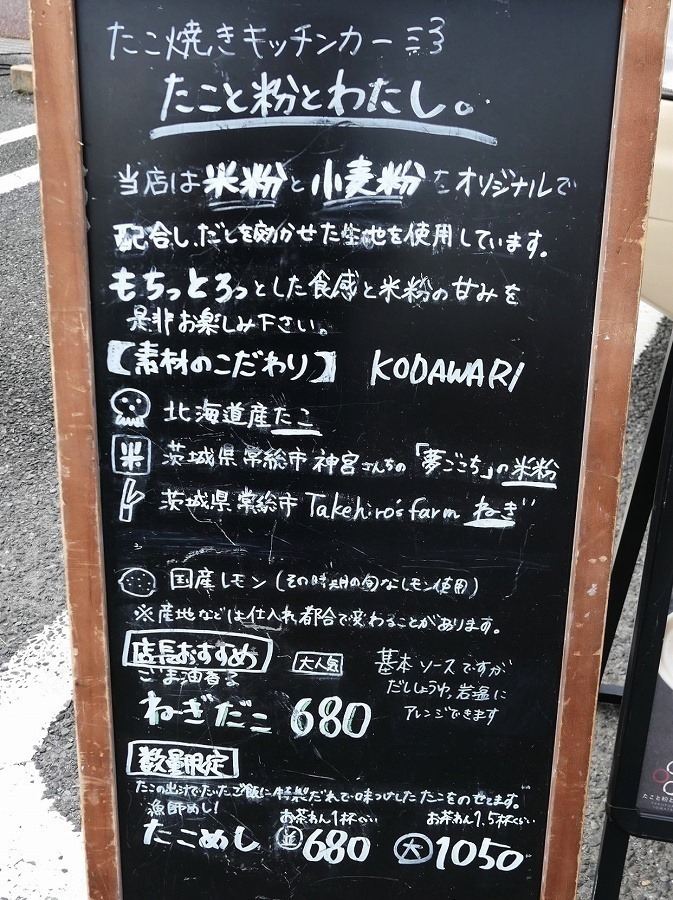 たこ焼きキッチンカー
たこと粉とわたし。
当店は米粉と小麦粉をオリジナルで
配合し、だしを効かせた生地を使用しています。
もちっとろっとした食感と米粉の甘みを
是非お楽しみ下さい。
【素材のこだわり】 KODAWARI
北海道産たこ
米 茨城県常総市神宮さんちの「夢ごこち」の米粉
茨城県常総市 Takehiro's farm ねぎ
国産レモン(その時期の旬なレモン使用)
※産地などは仕入れ都合で変わることがあります。
店長おすすめ 大人気
ごま油香る
ねぎだこ 680
基本ソースですが
だししょうゆ、岩塩に
アレンジできます
数量限定
たこの出汁でたいたご飯に特製だれで味つけしたたこをのせます。
漁師めし!
お茶わん1杯くらい お茶わん1.5杯くらい
たこめし 並680 大1050